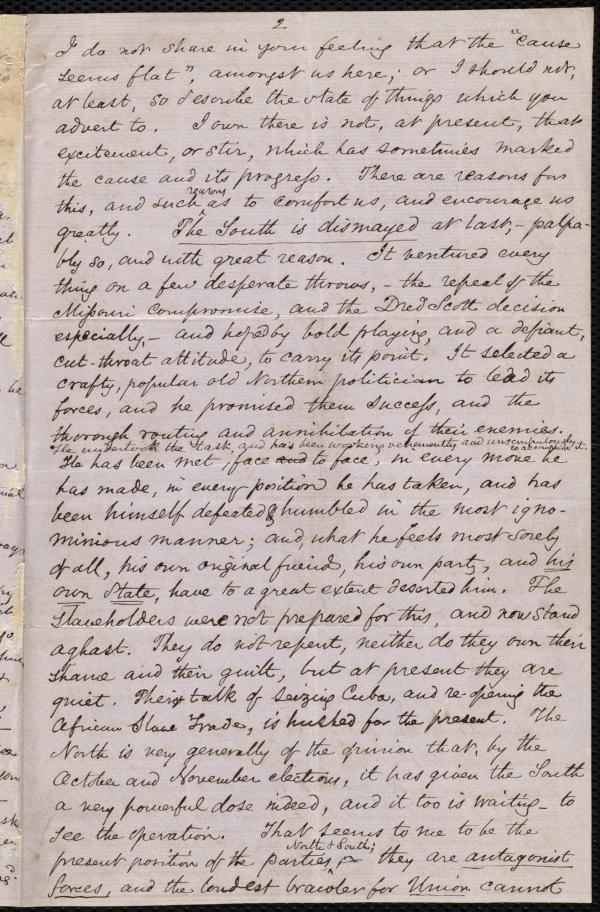 2
I do not share in your feeling that the "cause
seems flat", amongst us here; or I should not,
at least, so describe the state of things which you
advert to. I own there is not, at present, that
excitement, or stir, which has sometimes marked
the cause and its progress. There are reasons for
this, and such reasons as to comfort us, and encourage us
greatly. The South is dismayed at last, - palpa-
bly so, and with great reason. It ventured every
thing on a few desperate throws, - the repeal of the
Missouri Compromise, and the Dred Scott decision
especially, - and hoped by bold playing, and a defiant,
cut-throat attitude, to carry its point. It selected a
crafty, popular old Northern politician to lead its
forces, and he promised them success, and the
thorough routing and annihilation of their enemies.
He undertook the task, and has been working vehemently and unscrupulously
to accomplish it.
He has been met, face to face, in every move he
has made, in every position he has taken, and has
been himself defeated & humbled in the most igno-
minious manner; and, what he feels most sorely
of all, his own original friend, his own party, and his
own State, have to a great extent deserted him. The
Slaveholders were not prepared for this, and now stand
aghast. They do not repent, neither do they own their
shame and their guilt, but at present they are
quiet. Their talk of seizing Cuba, and re-opening the
African Slave Trade, is hushed for the present. The
North is very generally of the opinion that, by the
October and November elections, it has given the South
a very powerful dose indeed, and it too is waiting to
see the operation. That seems to me to be the
present position of the parties, North & South; they are antagonist
forces, and the loudest brawler for Union cannot